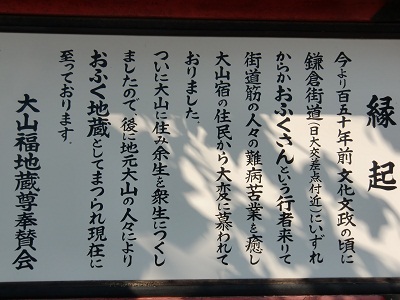 縁起
今より百五十年前文化文政の頃に
鎌倉街道(日大交差点付近)にいずれ
からかおふくさんという行者来りて
街道筋の人々の難病苦業を癒し
大山宿の住民から大変に慕われて
おりました。
ついに大山に住み余生を衆生につくし
ましたので、後に地元大山の人々により
おふく地蔵としてまつられ現在に
至っております。
大山福地蔵尊奉賛会